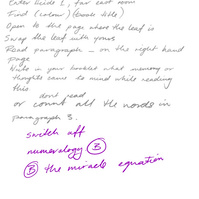 Enter Fields 1, far east room
Find (colour) (book title)
Open to the page where the leaf is
Swap the leaf with yours
Read paragraph _ on the right hand
page
Write in your booklet what memory or
thoughts came to mind while reading
this
dont read
or count all the words in
paragraph 3.
switch off
numerology (3)
(3) the miracle equation